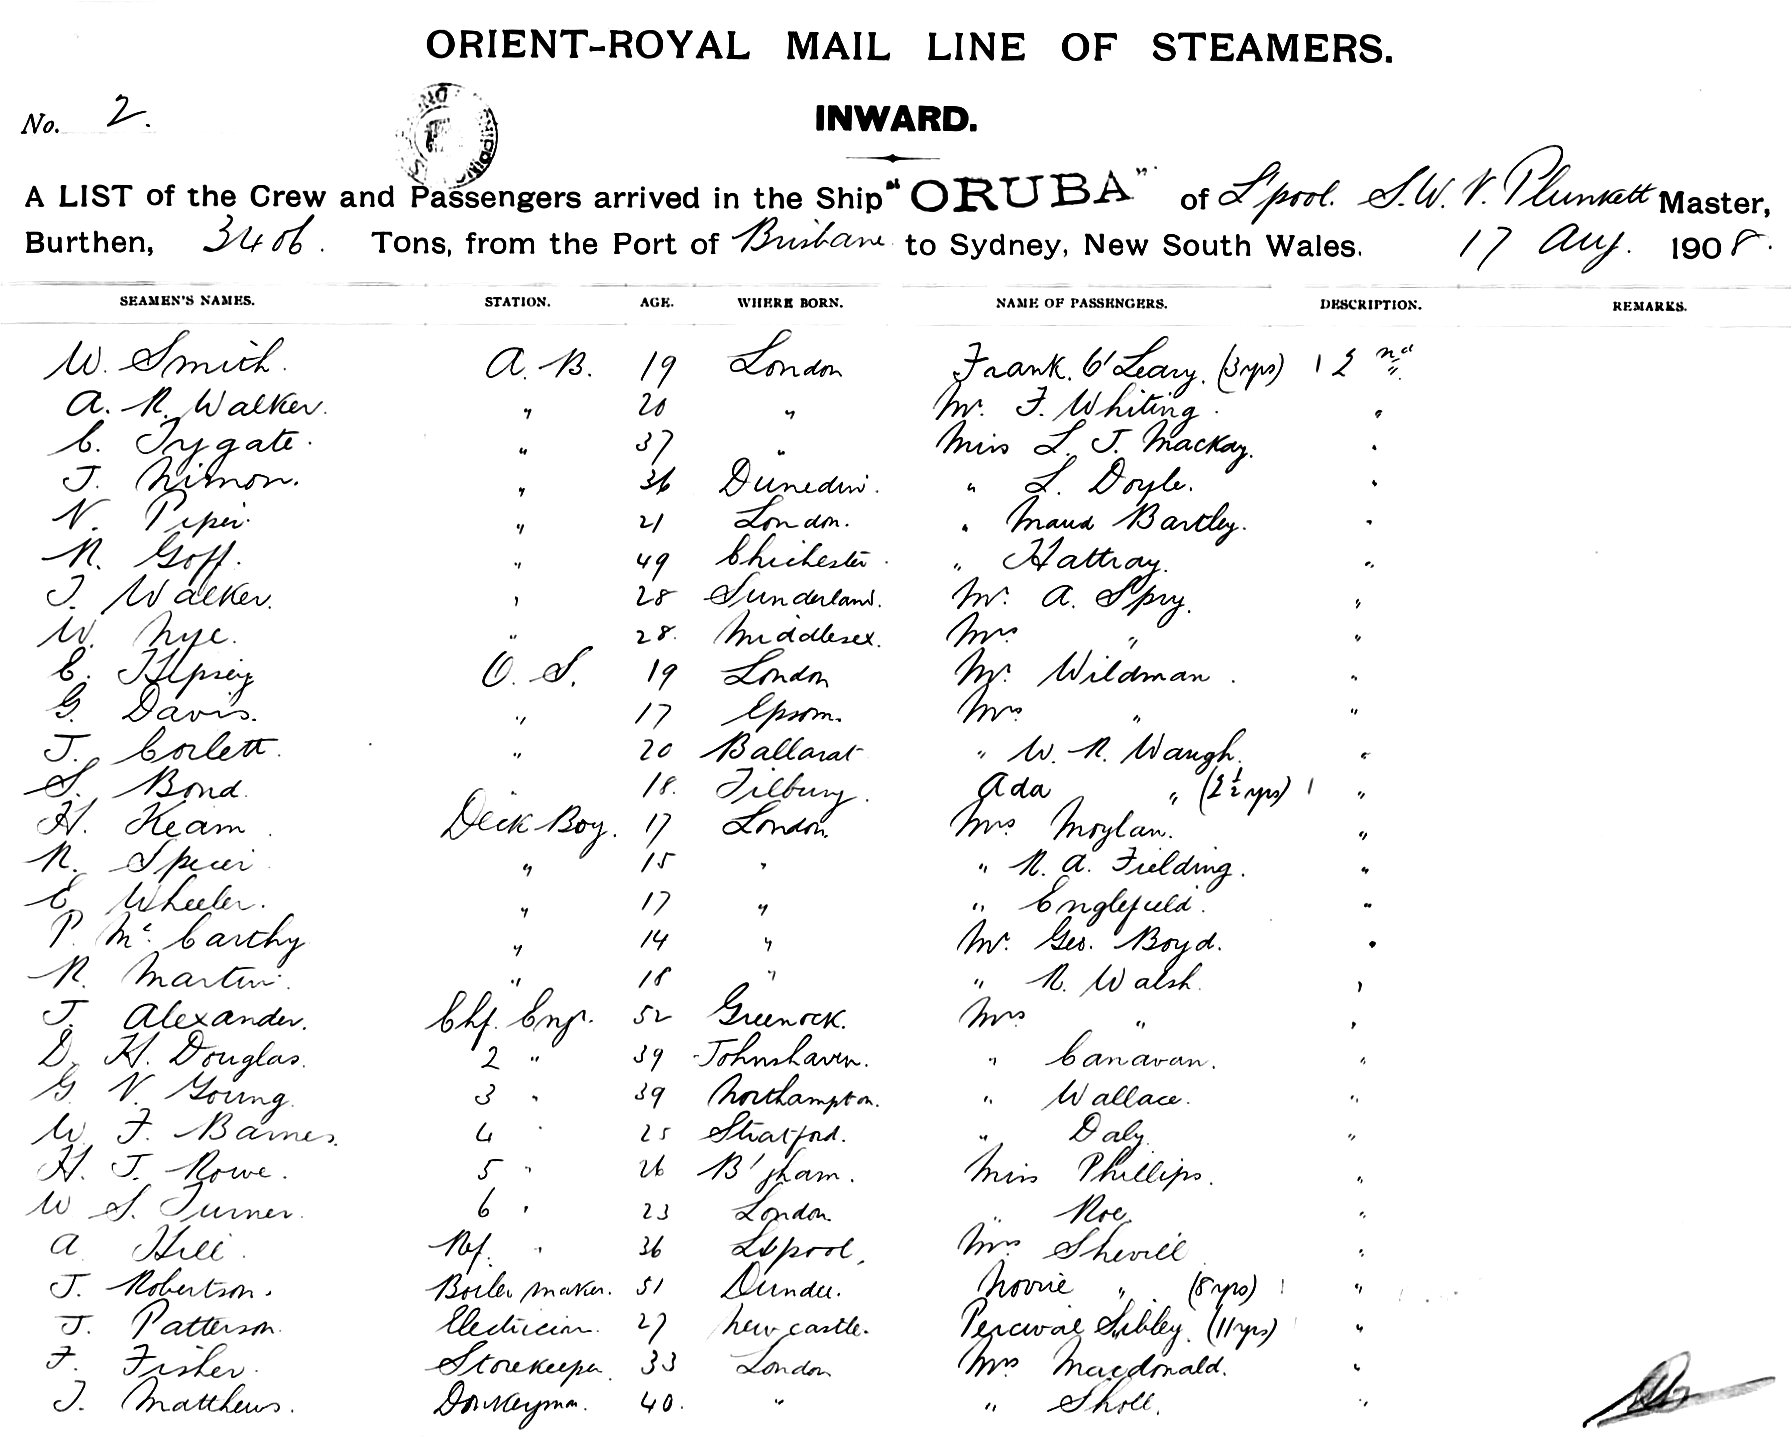 ORIENT-ROYAL MAIL LINE OF STEAMERS.
No. 2.
INWARD.
A LIST of the Crew and Passengers arrived in the Ship "ORUBA" of L'pool. S. W. V. Plunkett Master,
Burthen, 3406. Tons, from the Port of Brisbane to Sydney, New South Wales. 17 Aug. 1908.
SEAMEN'S NAMES. STATION. AGE. WHERE BORN. NAME OF PASSENGERS. DESCRIPTION. REMARKS.
W. Smith. A. B. 19 London Frank. O'Leary. (3 yrs) 1 2nd "
A. R. Walker. " 20 " Mr. F. Whiting. "
C. Trygate. " 37 " Miss L. J. Mackay. "
J. Nimon. " 36 Dunedin. " L. Doyle. "
N. Piper. " 21 London. " Maud Bartley. "
R. Goff. " 49 Chichester. " Hattray. "
J. Walker. " 28 Sunderland. Mr. A. Spry. "
W. Nye. " 28. Middlesex. Mrs " "
E. O. S. 19 London Mr. Wildman. "
G. Davis. " 17 Epsom. Mrs " "
J. Corlett. " 20 Ballarat " W. R. Waugh. "
S. Bond. " 18. Tilbury. Ada " (2½ yrs) 1 "
H. Keam. Deck Boy. 17 London. Mrs Moylan. "
R. Spicer " 15 " " R. A. Fielding. "
E. Wheeler. " 17 " " Englefield. "
P. McCarthy " 14 " Mr. Geo. Boyd. "
R. Martin. " 18 " " R. Walsh. "
J. Alexander. Chf. Engr. 52 Greenock. Mrs " "
D. H. Douglas. 2 " 39 Johnshaven. " Canavan. "
G. V. Young. 3 " 39 Northampton. " Wallace. "
W. F. Barnes. 4 " 25 Stratford. " Daly. "
H. J. Rowe. 5 " 26 B'gham. Miss Phillips. "
W S. Turner. 6 " 23 London. " Roe. "
A Hill. Ref. " 36 L'pool. Mrs Shevill "
J. Robertson. Boiler maker. 51 Dundee. Norrie " (8 yrs) 1 "
J. Patterson. Electrician. 27 Newcastle. Percival Sibley. (11 yrs) "
F. Fisher. Storekeeper. 33 London Mrs Macdonald. "
J. Matthews. Donkeyman. 40. " " Sholl. "